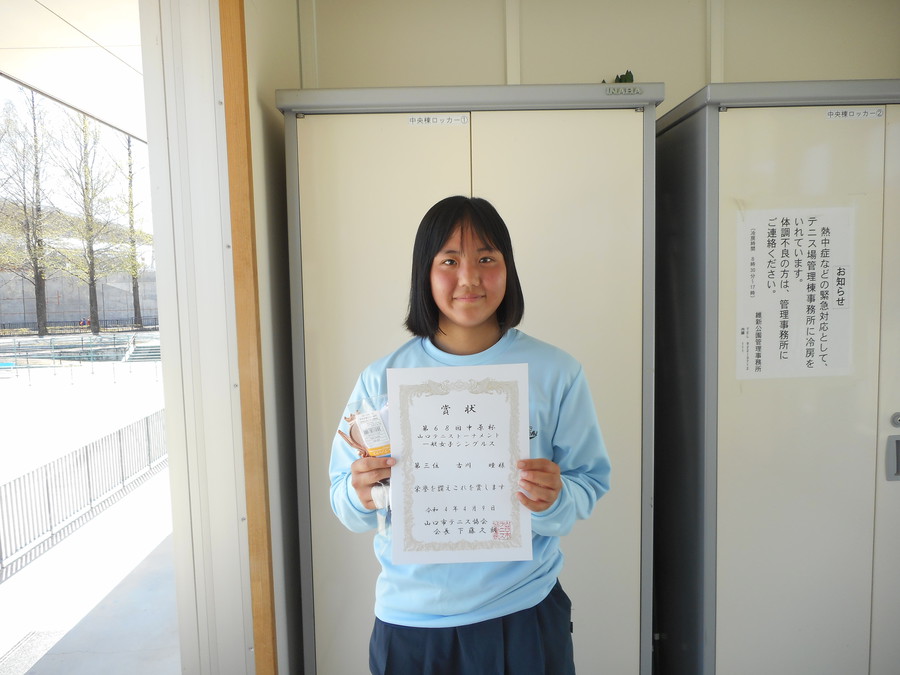 中央棟ロッカー①
INABA
中央棟ロッカー②
お知らせ
熱中症などの緊急対応として、
テニス場管理棟事務所に冷房を
いれています。
体調不良の方は、管理事務所に
ご連絡ください。
維新公園管理事務所
賞状
第68回中原杯
山口テニストーナメント
一般女子シングルス
第三位 古川 瞳様
栄誉を讃えこれを賞します
令和4年4月9日
山口市テニス協会
会長 下藤久